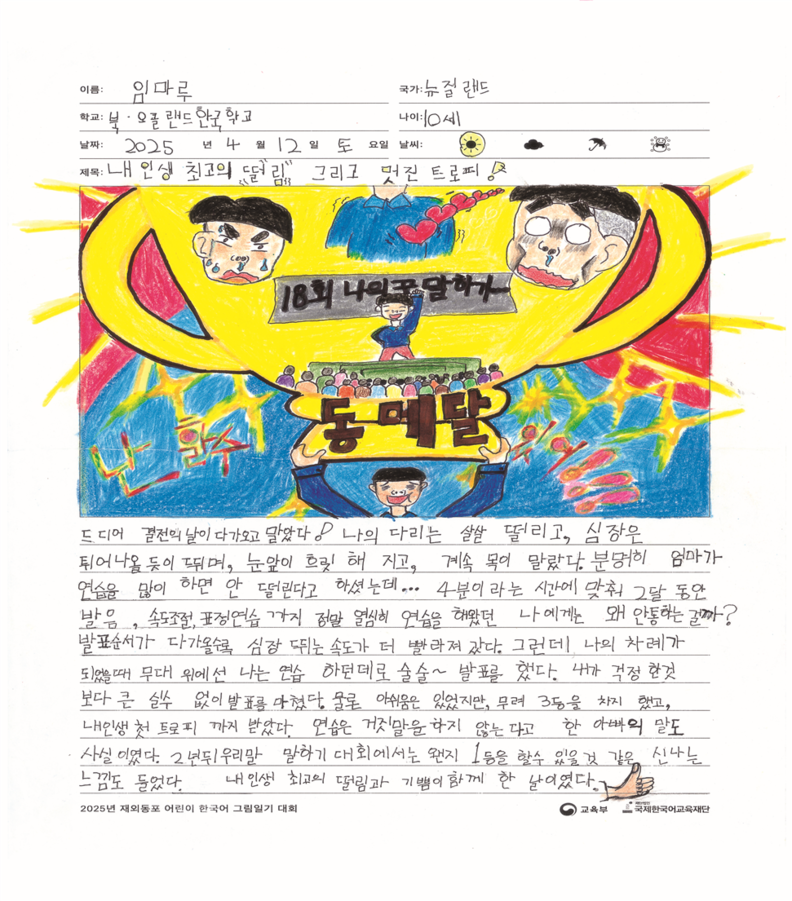 이름: 임마루
국가: 뉴질랜드
학교: 북·오클랜드한국학교
나이: 10세
날짜: 2025 년 4 월 12 일 토 요일
날씨:
제목: 내 인생 최고의 "떨림" 그리고 멋진 트로피!
18회 나의 꿈 말하기
동메달
드디어 결전의 날이 다가오고 말았다! 나의 다리는 살살 떨리고, 심장은
튀어나올 듯이 뛰며, 눈앞이 흐릿 해 지고, 계속 목이 말랐다. 분명히 엄마가
연습을 많이 하면 안 떨린다고 하셨는데... 4분이라는 시간에 맞춰 2달 동안
발음, 속도조절, 표정연습 까지 정말 열심히 연습을 해왔던 나에게는 왜 안통하는 걸까?
발표순서가 다가올수록 심장 뛰는 속도가 더 빨라져 갔다. 그런데 나의 차례가
되었을때 무대 위에 선 나는 연습 하던데로 술술~ 발표를 했다. 내가 걱정 한것
보다 큰 실수 없이 발표를 마쳤다. 물론 아쉬움은 있었지만, 무려 3등을 차지 했고,
내인생 첫 트로피 까지 받았다. 연습은 거짓말을 하지 않는 다고 한 아빠의 말도
사실 이였다. 2년뒤 우리말 말하기 대회에서는 왠지 1등을 할수 있을 것 같은 신나는
느낌도 들었다. 내 인생 최고의 떨림과 기쁨이 함께 한 날이였다.
2025년 재외동포 어린이 한국어 그림일기 대회
교육부
국제한국어교육재단